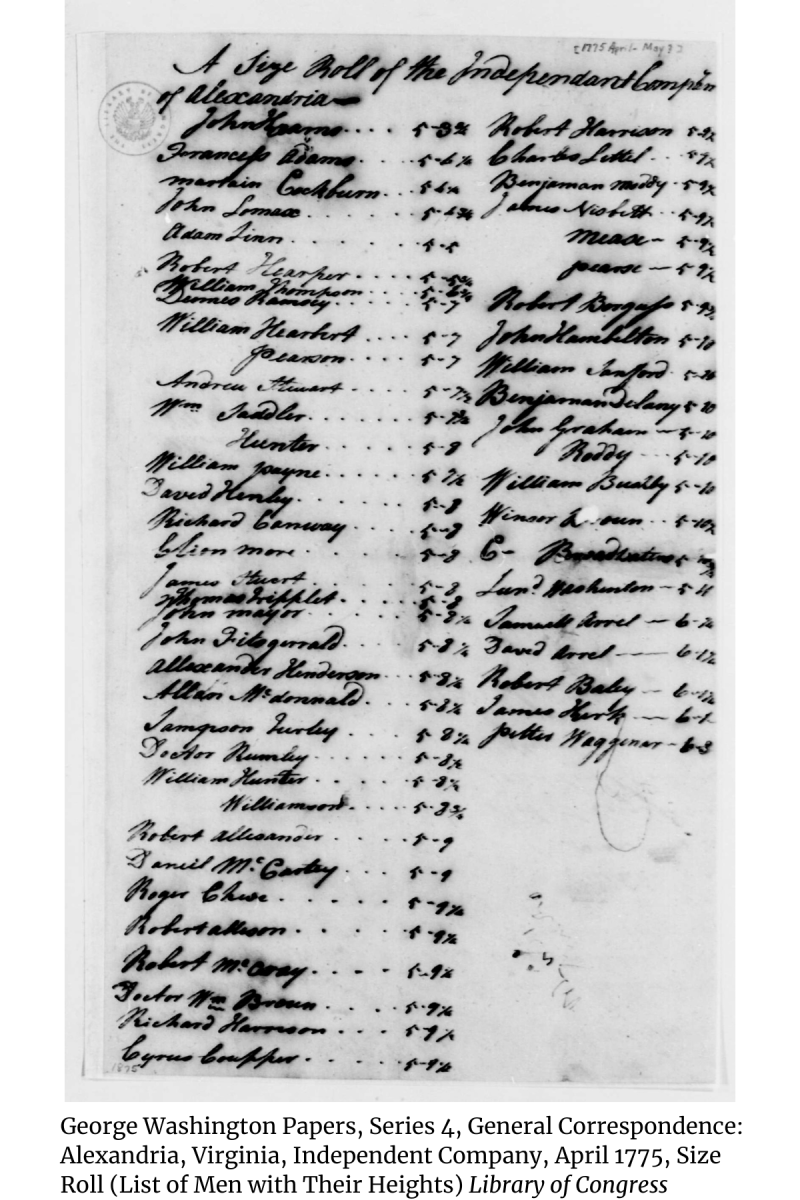 [1775 April-May ? ]
A Size Roll of the Independant Compn
of Alexandria
John Hearns .... 5-3¾
Francess Adams . . . . 5-4½
martain Cockburn . . 5-4¾
John Lomax . . . . . 5-4¾
Adam Linn . . . . . 5-5
Robert Hearper . . . . 5-5¾
William Thompson . . . . 5-6¾
Dennes Ramsey . . . . 5-7
William Hearbert . . . . 5-7
Pearson . . . . 5-7
Andrew Stewart . . . . 5-7½
Wm Saddler . . . . . 5-7¾
Hunter . . . . 5-8
William payne . . . . 5-7½
David Henley . . . . . 5-8
Richard Conway . . . . 5-8
Cleon more . . . . . 5-8
James Stuert . . . . 5-8
Thomas Tripplet . . . . 5-8
John mayor . . . . . 5-8¼
John Fitsgerrald . . . . 5-8¼
Allexander Henderson . . . 5-8½
Allan Mcdonnald . . . . 5-8½
Sampson Turley . . . . 5-8½
Doctor Rumley . . . . 5-8½
William Hunter . . . . 5-8½
Williamson . . . . 5-8¾
Robert allexander . . . . 5-9
Daneil McCartey . . . 5-9
Roger Chew . . . . . 5-9¼
Robert allison . . . . 5-9¼
Robert McCray . . . . 5-9¼
Doctor Wm Broun . . . . 5-9¼
Richard Harreson . . . 5-9½
Cyrus Coupper . . . . 5-9½
1775
Robert Harrison 5-9½
Charles Lettel . . 5-9½
Benjaman moddy - 5-9½
James Nisbett . . 5-9½
mease - 5-9½
pearse - 5-9½
Robert Borgess 5-9¾
John Hambelton 5-10
William Sanford - 5-10
Benjaman Delany 5-10
John Graham - 5-10
Reddy - - 5-10
William Bushby 5-10
Winsor Broun . . 5-10½
C- Broadwater 5-10¾
Lund Washenton - 5-11
Samuell Arrel - 6-¼
David Arrel - 6-1½
Robert Baley - 6-1½
James Herk - 6-1
Petter Waggenar - 6-3
George Washington Papers, Series 4, General Correspondence:
Alexandria, Virginia, Independent Company, April 1775, Size
Roll (List of Men with Their Heights) Library of Congress